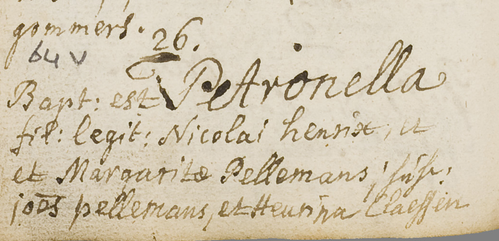 gommers.
64 v
26.
Bapt: est Petronella
fil: legit: Nicolai henrix, et
et Margaritæ Pellemans, susc:
joēs pellemans, et Henrina Claessen